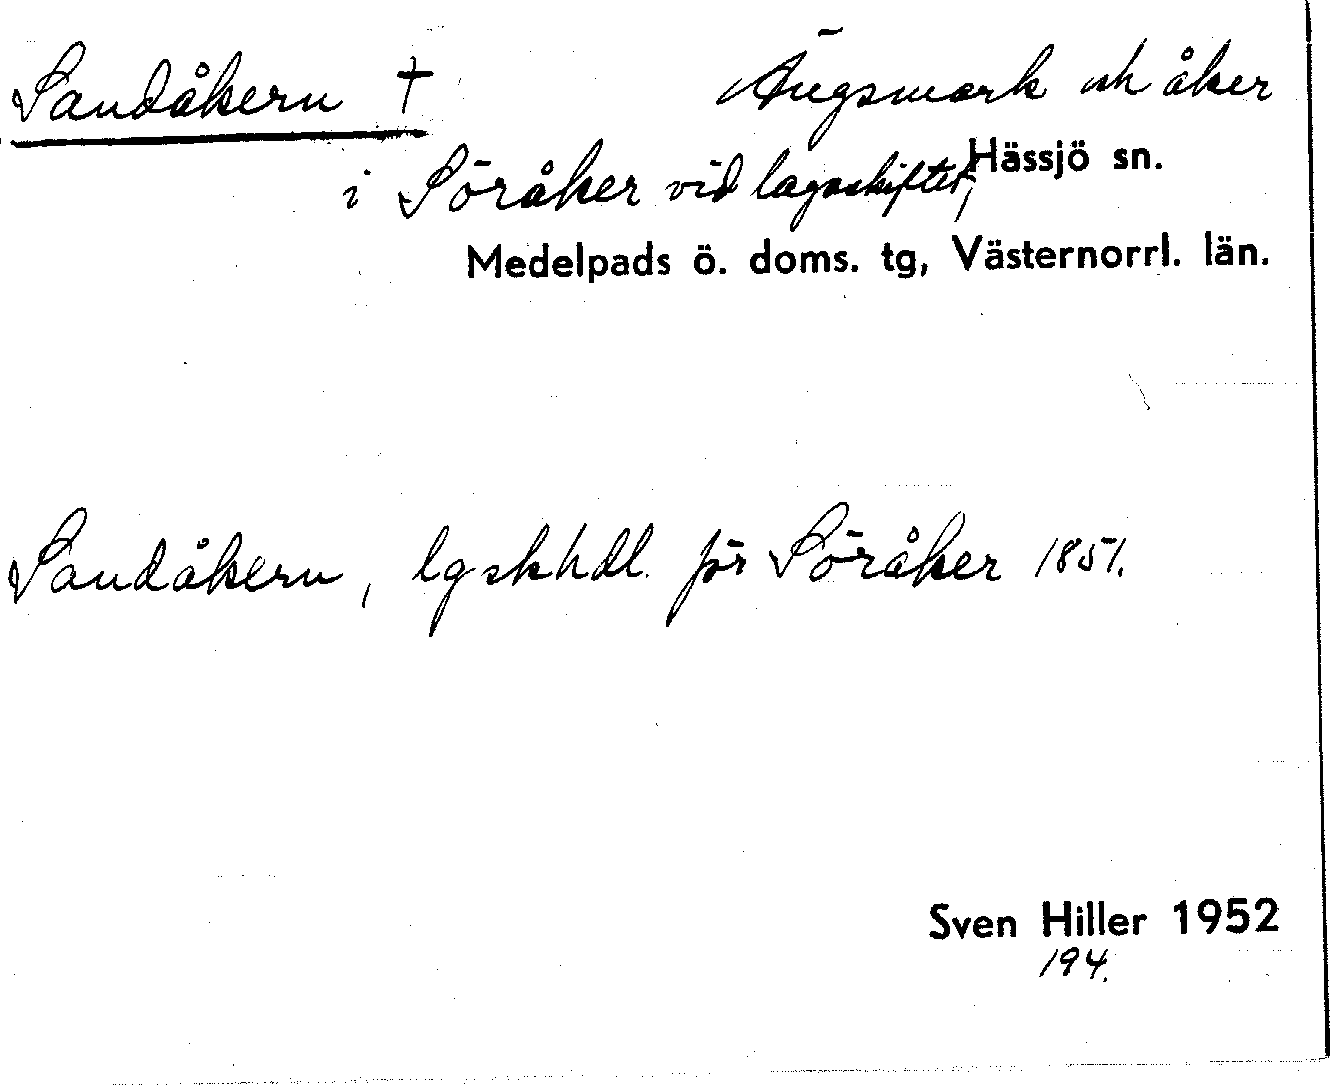 Sandåkern † Ängsmark och åker
i Söråker vid lagaskiftet, Hässjö sn.
Medelpads ö. doms. tg, Västernorrl. län.
Sandåkern, lgskhdl. för Söråker 1851.
Sven Hiller 1952
194.